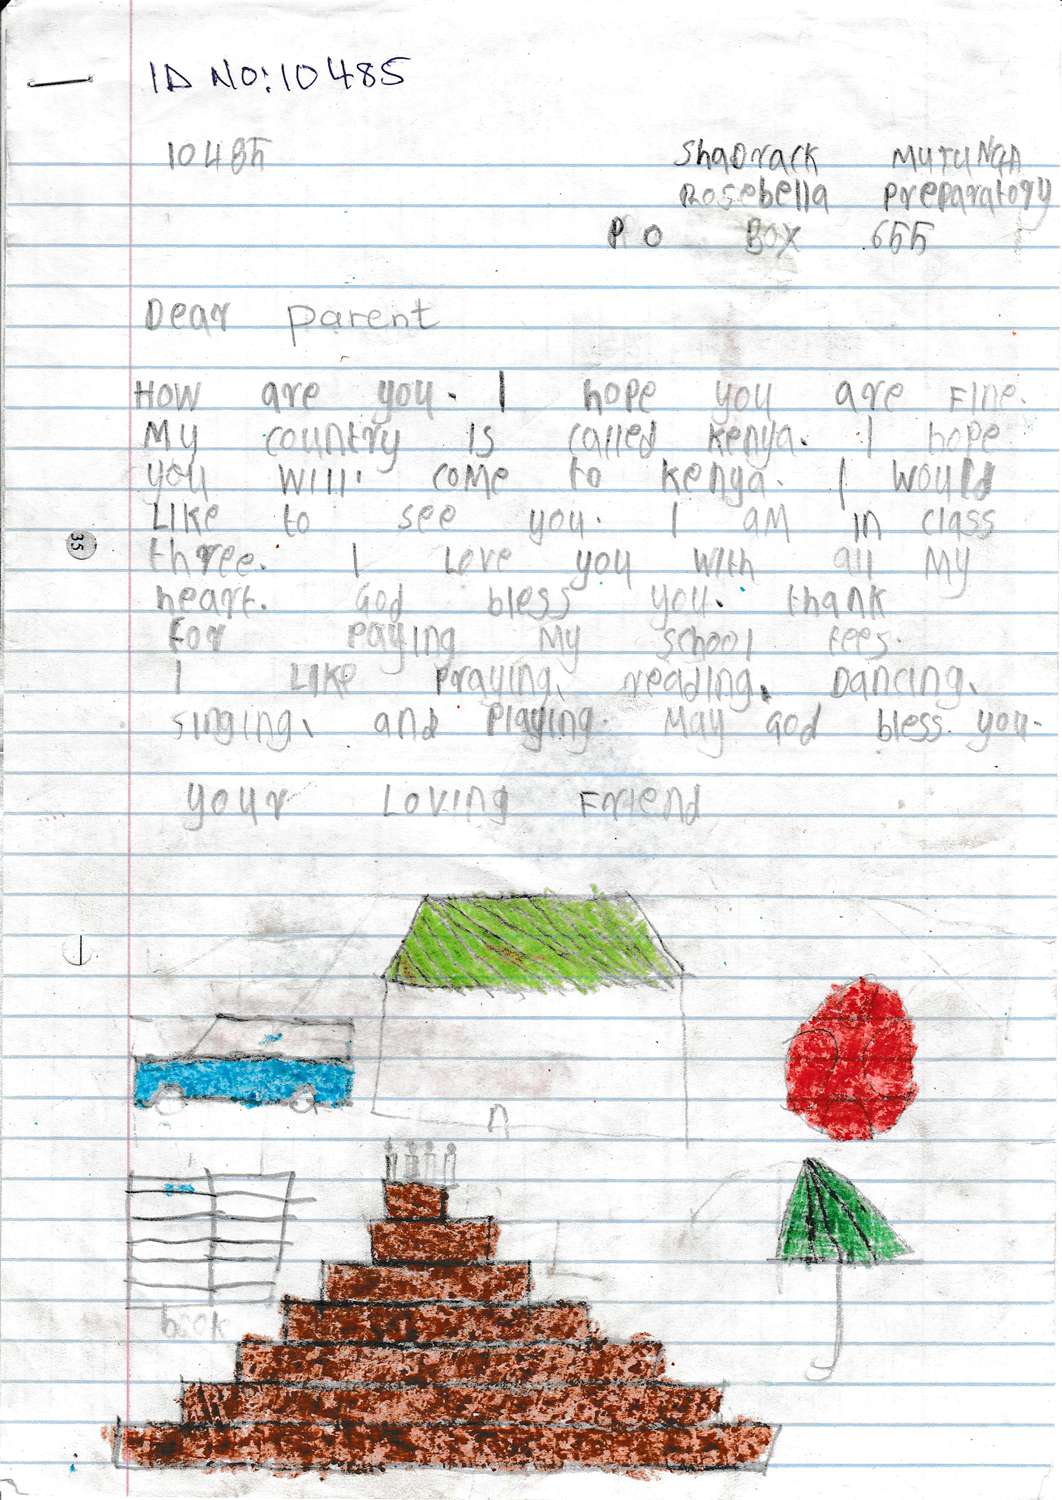 ID NO: 10485
10485
Shadrack MUTUNGA
Rosebella Preparatory
P O BOX 655
Dear parent
How are you. I hope you are Fine.
My country is called Kenya. I hope
you will come to Kenya. I would
Like to see you. I am in class
three. I Love you with all My
heart. God bless you. thank
For paying My school Fees.
I Like praying, reading, Dancing,
singing, and Playing. May God bless you.
your Loving Friend
35
book